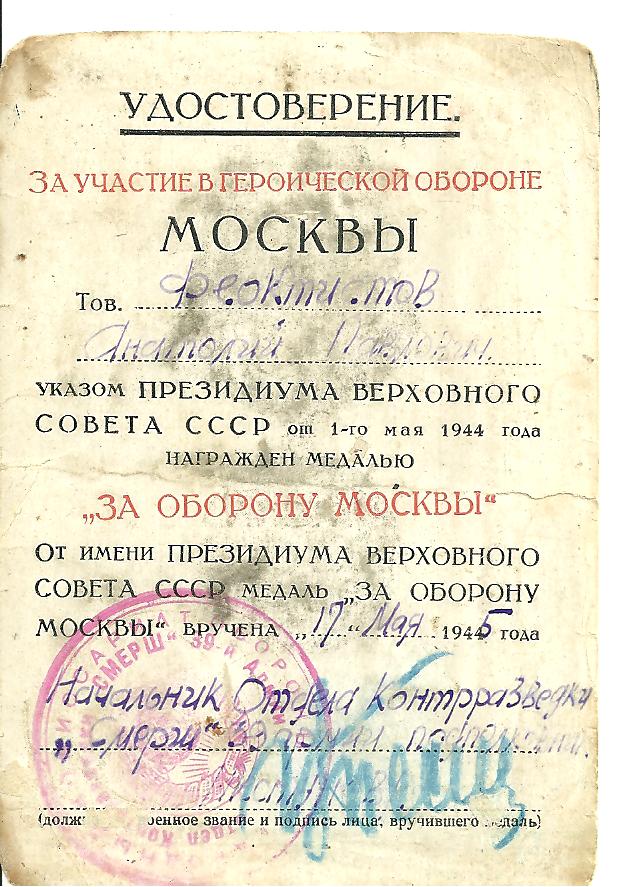 УДОСТОВЕРЕНИЕ.
ЗА УЧАСТИЕ В ГЕРОИЧЕСКОЙ ОБОРОНЕ
МОСКВЫ
Тов. Феоктистов
Анатолий Павлович
УКАЗОМ ПРЕЗИДИУМА ВЕРХОВНОГО
СОВЕТА СССР от 1-го мая 1944 года
НАГРАЖДЕН МЕДАЛЬЮ
„ЗА ОБОРОНУ МОСКВЫ“
От имени ПРЕЗИДИУМА ВЕРХОВНОГО
СОВЕТА СССР МЕДАЛЬ „ЗА ОБОРОНУ
МОСКВЫ“ ВРУЧЕНА „17“ Мая 1945 года
Начальник Отдела Контрразведки
„Смерш“ 39 армии
(долж енное звание и подпись лица, вручившего даль)
"СМЕРШ" 39-й